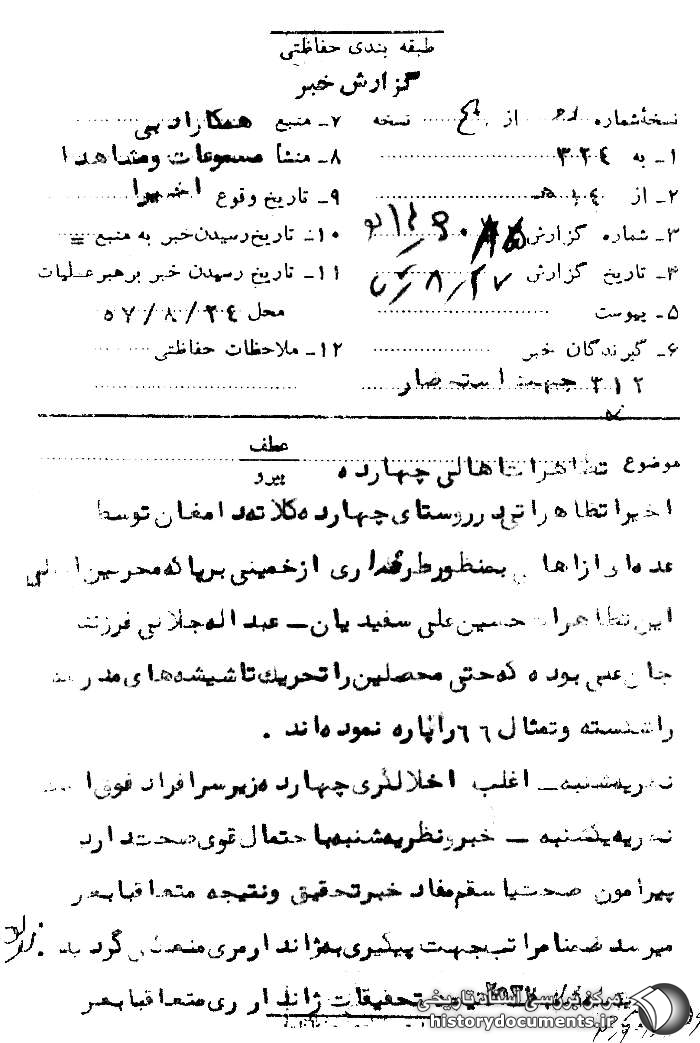 طبقه بندی حفاظتی
گزارش خبر
نسخهٔ شماره از نسخه
۷ـ منبع همکاراد بی
۱ـ به ۳۲٤
۸ـ منشأ مسموعات ومشاهدا
۲ـ از
۹ـ تاریخ وقوع اخیرا
۳ـ شماره گزارش
۱۰ـ تاریخ رسیدن خبر به منبع =
٤ـ تاریخ گزارش
۱۱ـ تاریخ رسیدن خبر برهبر عملیات
۵ـ پیوست
محل ۵۷/۸/۲٤
۶ـ گیرندگان خبر
۱۲ـ ملاحظات حفاظتی
۳۱۲ جهت استحضار
عطف
موضوع تظاهرات اهالی چهارده
پیرو
اخیرا تظاهراتی در روستای چهارده کلاته دامغان توسط
عده ای از اهالی بمنظور طرفداری از خمینی برپا که محرکین اصلی
این تظاهرات حسین علی سفیدیان ـ عبداله جلالی فرزند
جان علی بوده که حتی محصلین را تحریک تا شیشه های مدرسه
را شکسته و تمثال ٦٦ را پاره نموده اند .
نظریه شنبه ـ اغلب اخلالگری چهارده زیر سر افراد فوق است
نظریه یکشنبه ـ خبر و نظریه شنبه با احتمال قوی صحت دارد
پیرامون صحت یا سقم مفاد خبر تحقیق و نتیجه متعاقبا بعرض
میرسد ضمنا مراتب جهت پیگیری به ژاندارمری منعکس گردید .
تحقیقات ژاندارمری متعاقبا بعرض
مرکز بررسی اسناد تاریخی
historydocuments.ir